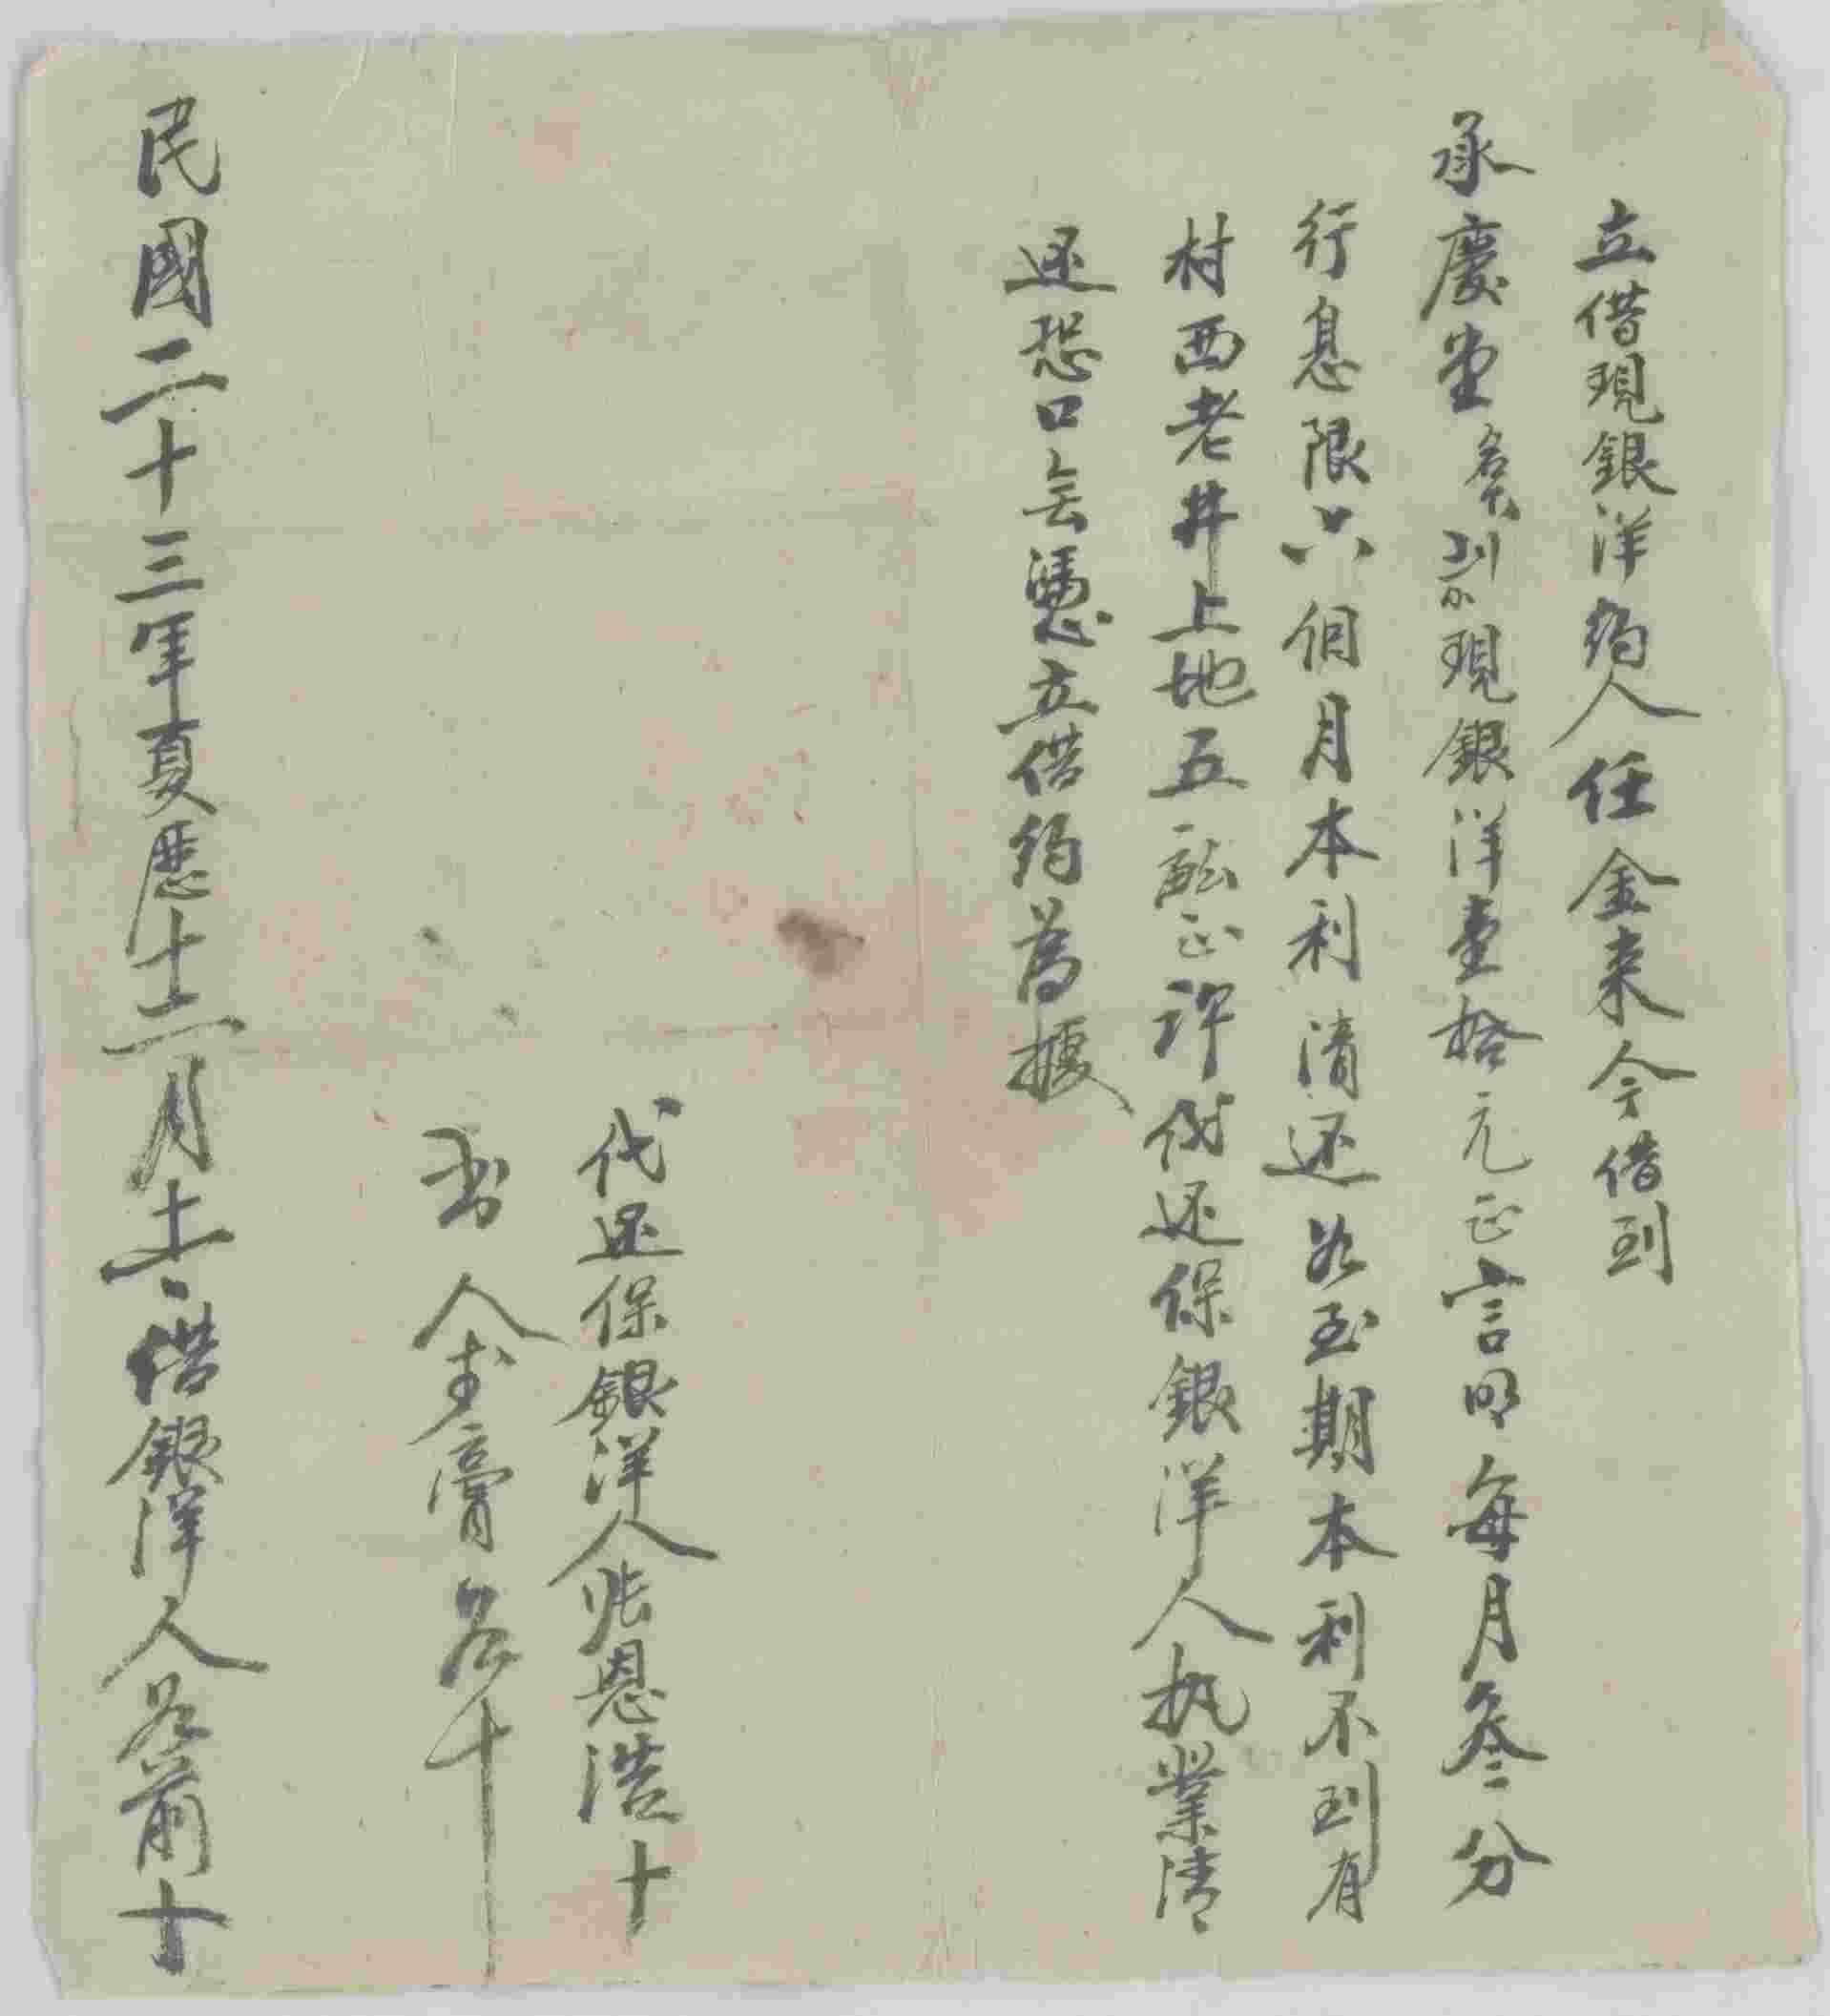 立借現銀洋約人任金来今借到
承慶堂名下現銀洋壹拾元正言明每月叁分
行息限六個月本利清还如至期本利不到有
村西老井上地五畝正許代还保銀洋人执業清
还恐口无憑立借約為據
代还保銀洋人張恩浩十
書人李膏名十
民國二十三年夏歷十二月十二借銀洋人名前十